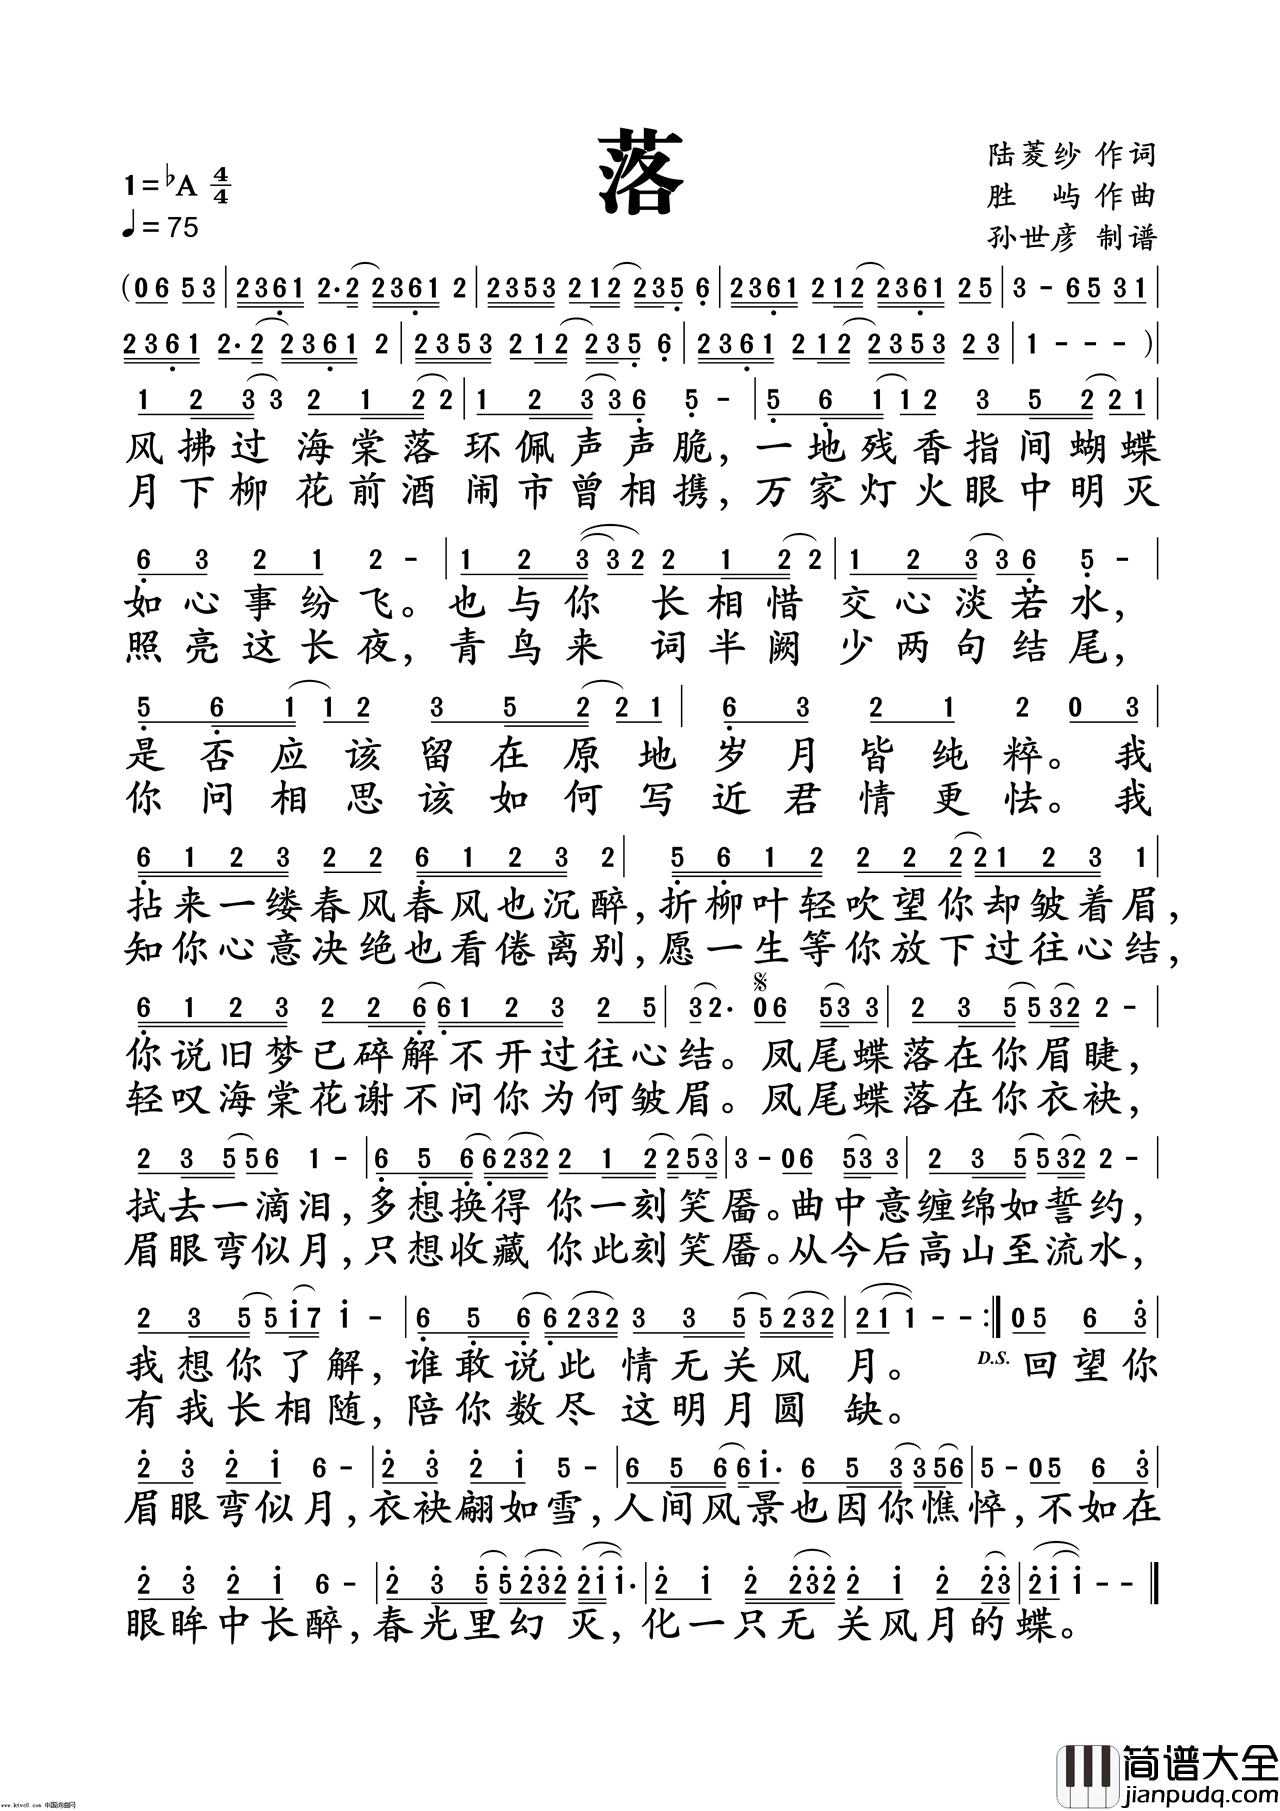 落
陆菱纱 作词
1=♭A 4/4
胜 屿 作曲
♩=75
孙世彦 制谱
(06 53|2361 2·2 2361 2|2353 212 235 6|2361 212 2361 25|3- 65 31|
2361 2·2 2361 2|2353 212 235 6|2361 212 2353 23|1---)|
1 2 3 3 2 1 2 2|1 2 3 3 6 5 -|5 6 1 1 2 3 5 2 2 1|
风拂过 海棠落 环佩声声脆,一地残香指间蝴蝶
月下柳 花前酒 闹市曾相携,万家灯火眼中明灭
6 3 2 1 2 -|1 2 3 3 2 2 1 2 2|1 2 3 3 6 5 -|
如心事纷飞。也与你 长相惜 交心淡若水,
照亮这长夜,青鸟来 词半阙 少两句结尾,
5 6 1 1 2 3 5 2 2 1|6 3 2 1 2 0 3|
是否应该留在原地岁月皆纯粹。我
你问相思该如何写近君情更怯。我
6 1 2 3 2 2 6 1 2 3 2|5 6 1 2 2 2 2 2 1 2 3 1|
拈来一缕春风春风也沉醉,折柳叶轻吹望你却皱着眉,
知你心意决绝也看倦离别,愿一生等你放下过往心结,
6 1 2 3 2 2 6 6 1 2 3 2 5|3 2· 06 53 3|2 3 5 5 3 2 2 -|
你说旧梦已碎解不开过往心结。凤尾蝶落在你眉睫,
轻叹海棠花谢不问你为何皱眉。凤尾蝶落在你衣袂,
2 3 5 5 6 1 -|6 5 6 6 2 3 2 2 1 2 2 5 3|3 - 06 53 3|2 3 5 5 3 2 2 -|
拭去一滴泪,多想换得 你一刻笑靥。曲中意缠绵如誓约,
眉眼弯似月,只想收藏 你此刻笑靥。从今后高山至流水,
2 3 5 5 1 7 1 -|6 5 6 6 2 3 2 3 3 5 5 2 3 2|2 1 1 - -:‖05 6 3|
我想你了解,谁敢说此 情无关风 月。 D.S. 回望你
有我长相随,陪你数尽 这明月圆 缺。
2 3 2 1 6 -|2 3 2 1 5 -|6 5 6 6 1· 6 5 3 3 5 6|5 - 05 6 3|
眉眼弯似月,衣袂翩如雪,人间风景也因你憔悴,不如在
2 3 2 1 6 -|2 3 5 5 2 3 2 2 1 1·|2 1 2 2 3 2 2 1 2 2 3|2 1 1 - -‖
眼眸中长醉,春光里幻 灭,化一只无 关风月的蝶。
简谱大全
jianpudq.com
www.ktvc8.com 中国词曲网